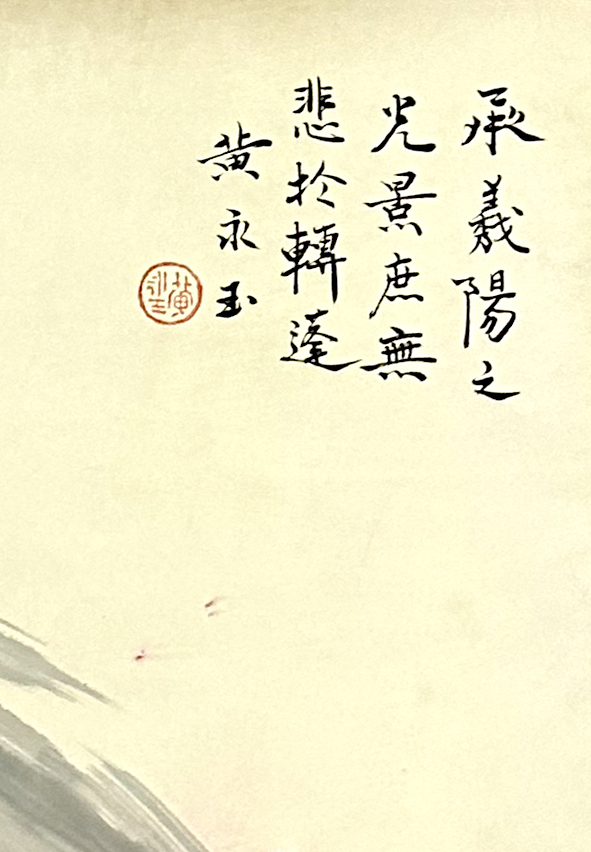 承羲陽之
光景庶無
悲於轉蓬
黃永玉
黃永玉